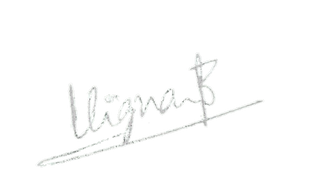 Vigna B